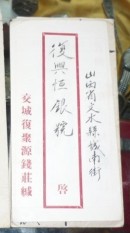 山西省文水縣城南街
復興恒銀號
啓
交城復聚源錢莊緘